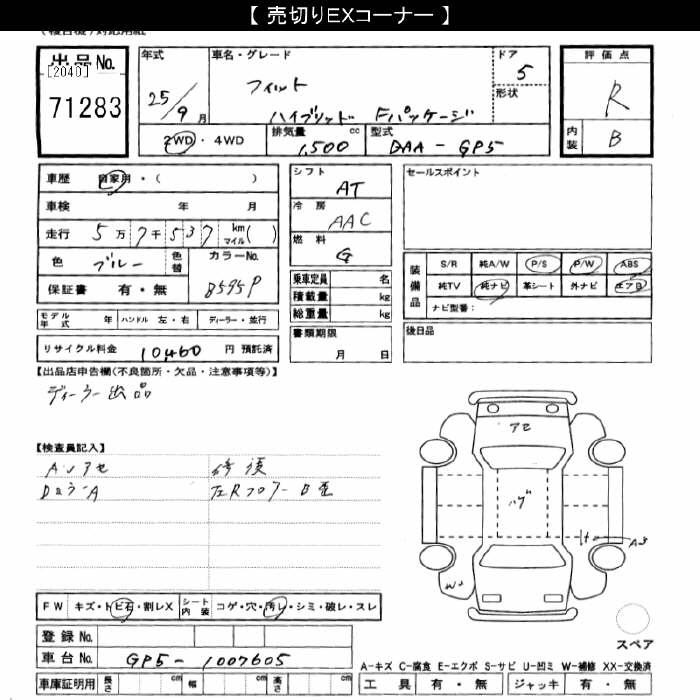 【 売切りEXコーナー 】
出品No.
[2040]
71283
年式
25/9月
車名・グレード
フィット
ハイブリッド Fパッケージ
ドア
5
形状
評価点
R
内装
B
2WD・4WD
排気量 1,500 cc
型式 DAA-GP5
車歴 自家用・( )
車検 年 月
走行 5万7千537 km マイル( )
色 ブルー
色替
カラーNo. B595P
保証書 有・無
モデル年式 年 ハンドル 左・右 ディーラー・並行
リサイクル料金 10,460 円 預託済
シフト AT
冷房 AAC
燃料 G
乗車定員 名
積載量 kg
総重量 kg
書類期限
月 日
セールスポイント
装備品
S/R 純A/W P/S P/W ABS
純TV 純ナビ 革シート 外ナビ エアB
ナビ型番:
後日品
【出品店申告欄(不良箇所・欠品・注意事項等)】
ディーラー出品
【検査員記入】
修復
FW キズ・トビ石・割レX シート内装 コゲ・穴・汚レ・シミ・破レ・スレ
登録No.
車台No. GP5-1007605
車庫証明用 長さ cm 幅 cm 高さ cm
スペア
A-キズ C-腐食 E-エクボ S-サビ U-凹ミ W-補修 XX-交換済
工具 有・無 ジャッキ 有・無